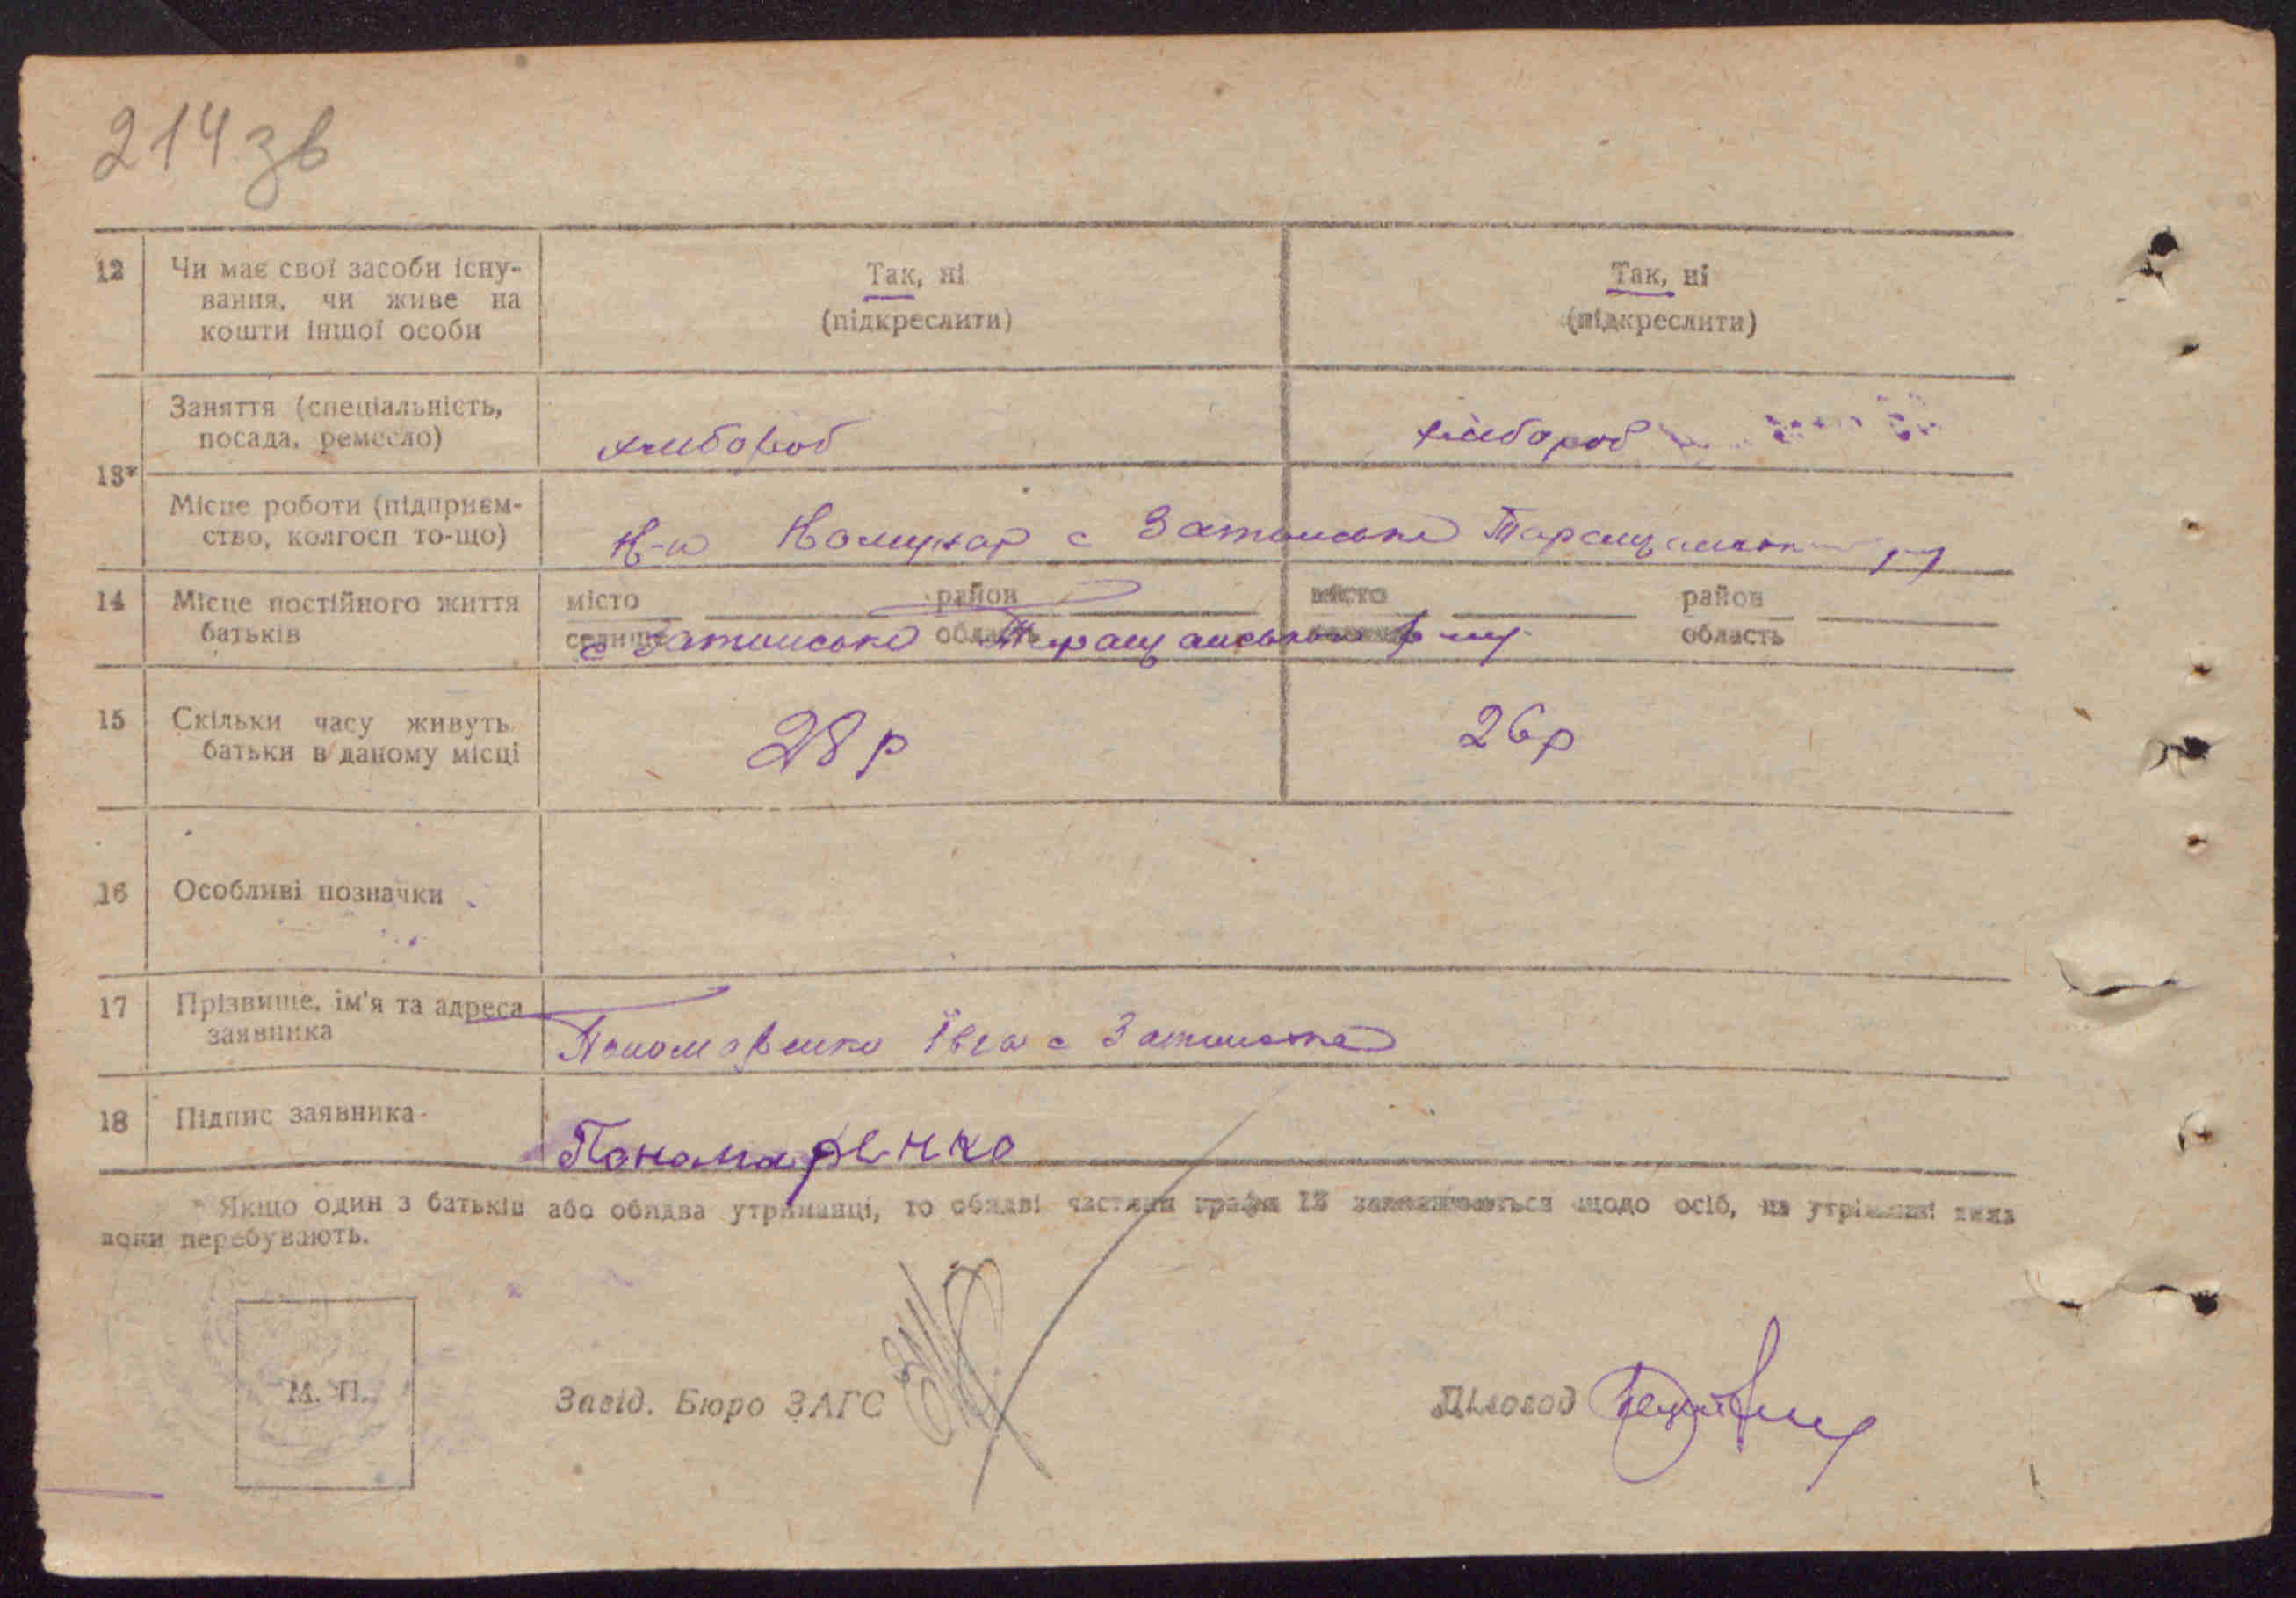 214 зв
12 Чи має свої засоби існу-
вання, чи живе на
кошти іншої особи
Так, ні
(підкреслити)
Так, ні
(підкреслити)
13*
Заняття (спеціальність,
посада, ремесло)
хлібороб
хлібороб
Місце роботи (підприєм-
ство, колгосп то-що)
с
14 Місце постійного життя
батьків
місто район
селище область
місто район
область
15 Скільки часу живуть
батьки в даному місці
28 р
26 р
16 Особливі позначки
17 Прізвище, ім'я та адреса
заявника
Пономаренко с
18 Підпис заявника
Пономаренко
* Якщо один з батьків або обидва утриманці, то обидві частини графи 13 заповнюються щодо осіб, на утріманні яких
вони перебувають.
М. П.
Завід. Бюро ЗАГС
Діловод